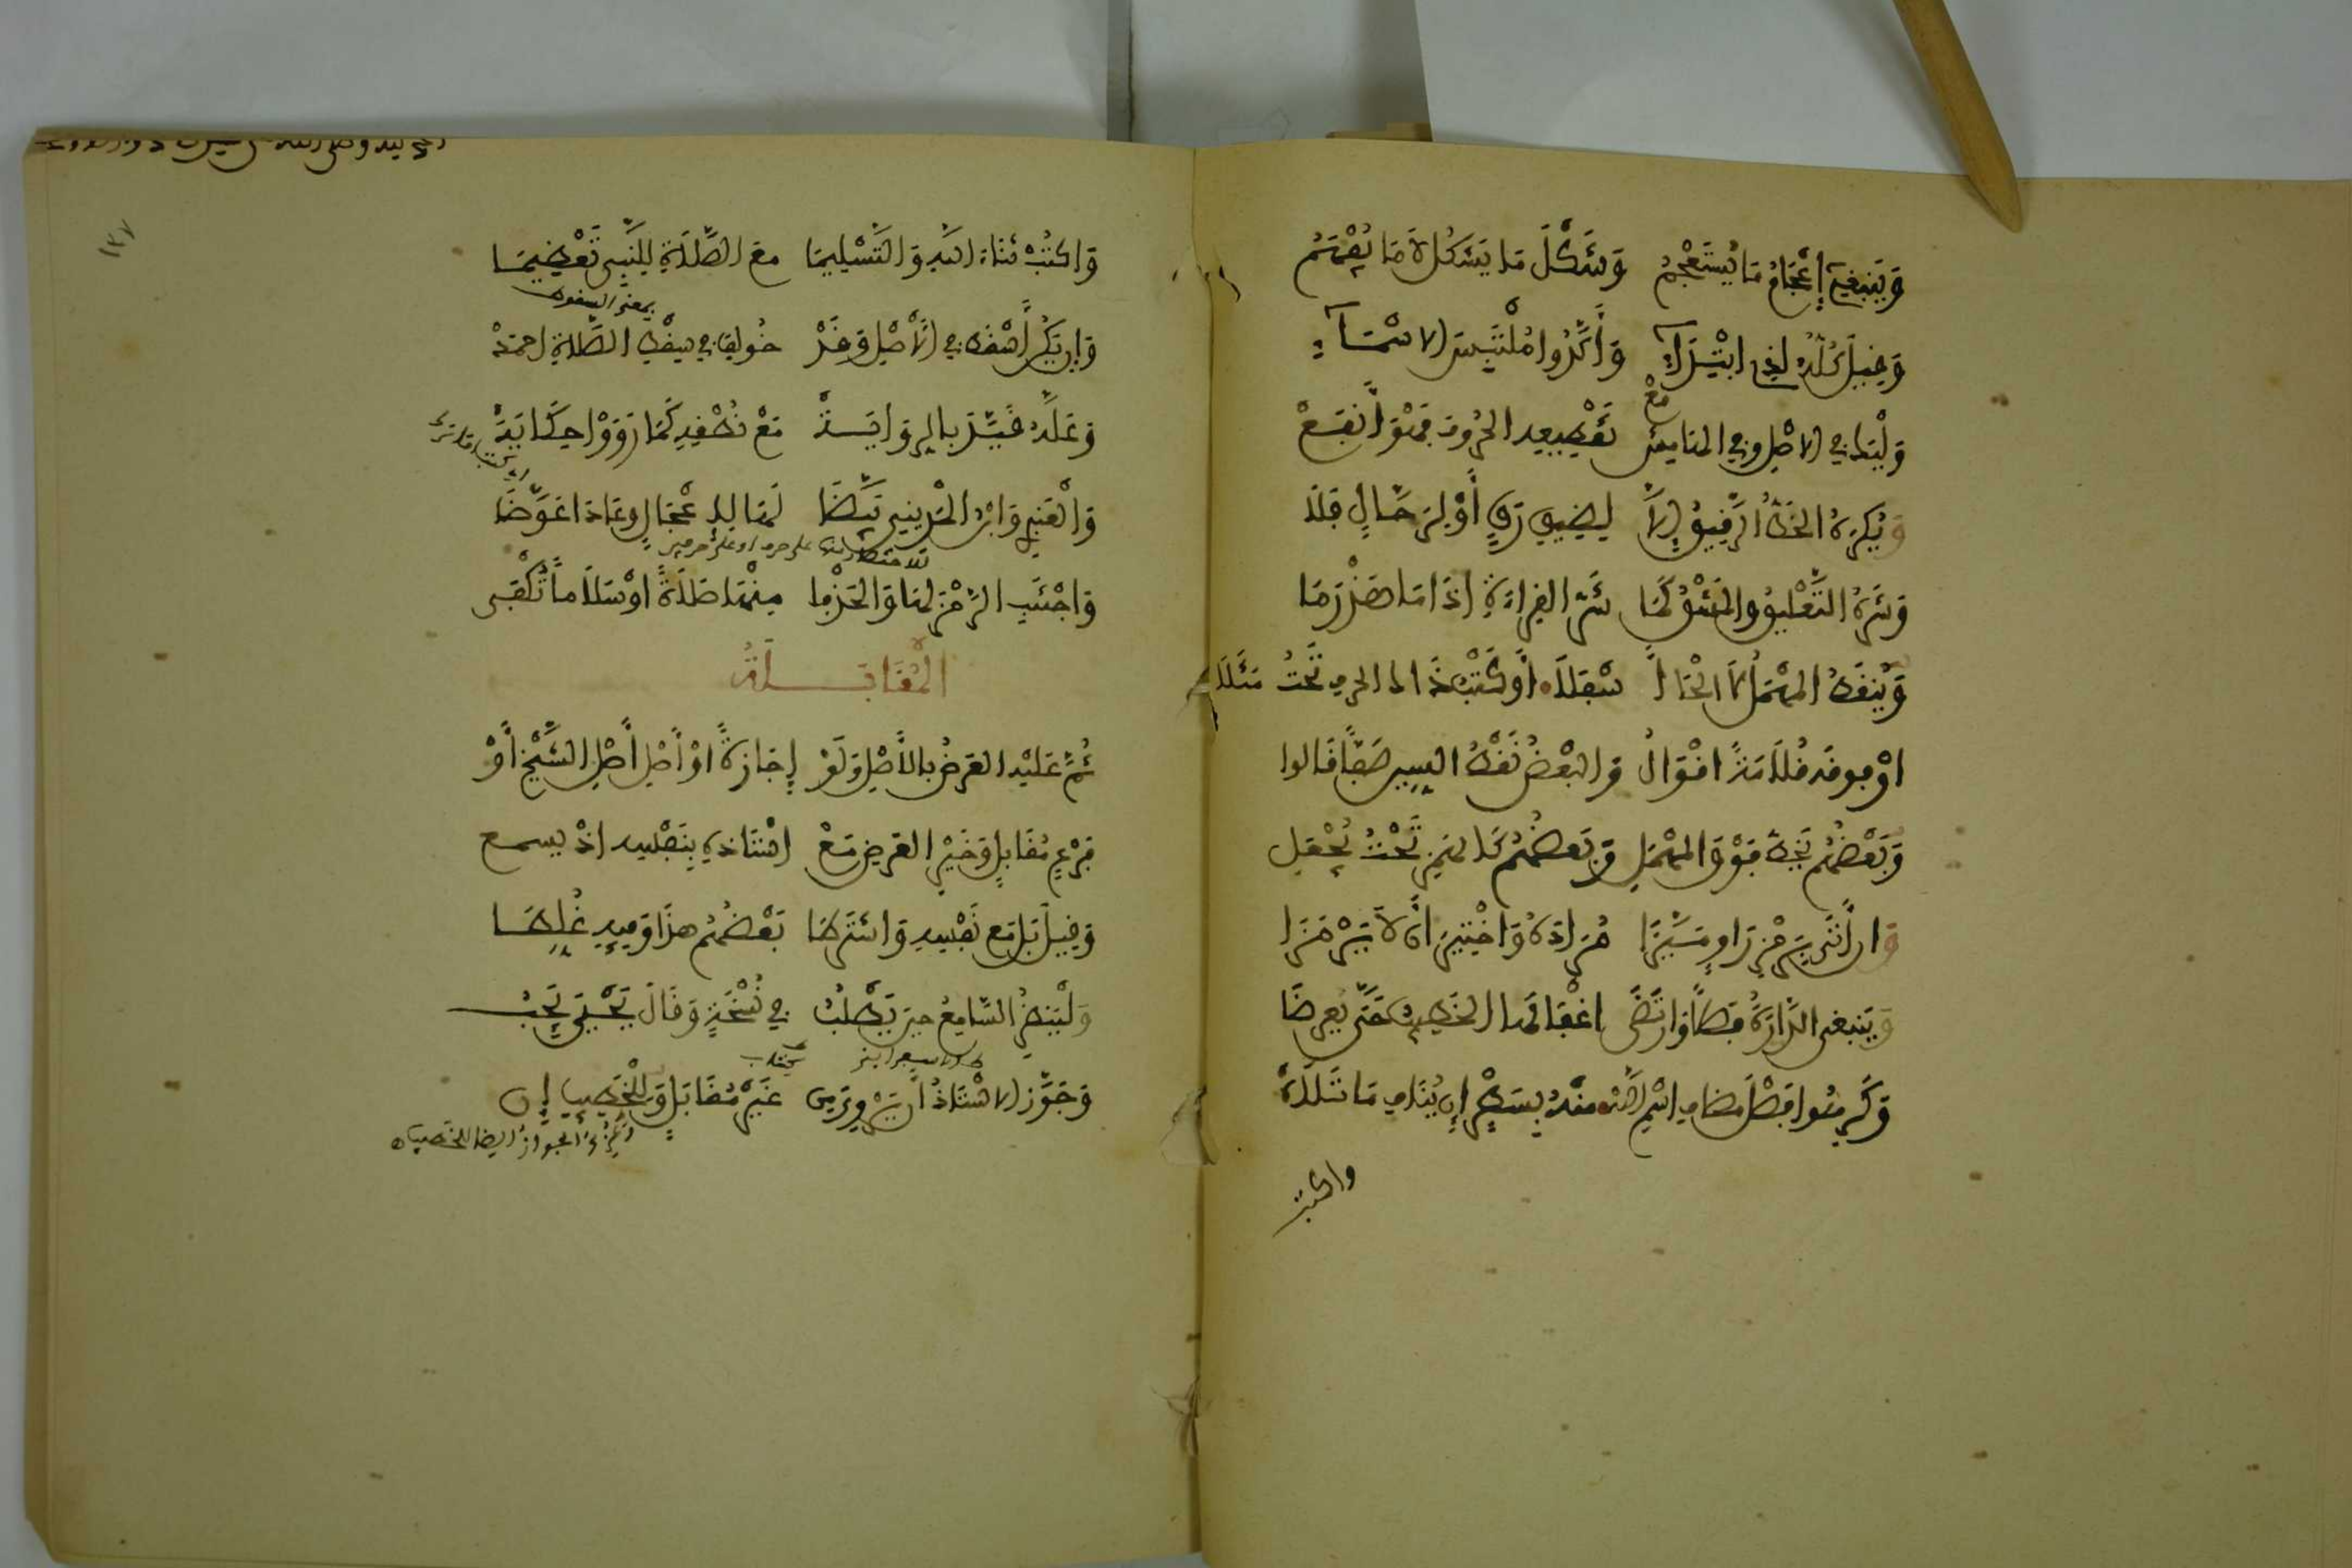 وَيَنبَغِي إعْجَامُ مَا يُسْتَعْجَمُ وَشَكْلَ مَا يَشْكُلُ لَا مَا يُفْهَمُ
وَفِيلَ كُلُّهُ لِذِي ابْتِدَاءِ وَأَكَّدُوا مُلْتَبِسَ الاسْمَاءِ
وَلْيَكُ فِي الاصْلِ وَفِي الهَامِشِ مَعْ تَفْطِيعِهِ الحُرُوفَ فَهْوَ أَنفَعْ
وَيُكْرَهُ الخَطُّ الرَّفِيقُ إِلَّا لِضِيقِ رَقٍّ أَوْ لِرَحَّالٍ فَلَا
وَشَرُّهُ التَّعْلِيقُ وَالمَشْقُ كَمَا شَرُّ الفِرَاءَةِ إذَا مَا هَذْرَمَا
وَيُنفَطُ المُهْمَلُ لَا الْحَا أَسْفَلَا أَوْ كَتْبُ ذَاكَ الحَرْفِ تَحْتُ مَثَلَا
اوْ فَوفَهُ فُلَامَةً افْوَالُ وَالبَعْضُ نَفْطُ السِّينِ صَفًّا فَالوا
وَبَعْضُهُمْ يَخُطُّ فَوْقَ المُهْمَلِ وَبَعْضُهُمْ كَالهَمْزِ تَحْتُ يُجْعَلِ
وَان أَتَى بِرَمْزِ رَاوٍ مَيَّزَا مُرَادَهُ وَاخْتِيرَ أَن لَا يَرْمُزَا
وَيَنبَغِي الدَّارَةُ فَصْلًا وَارْتَضَى اغْفَالَهَا الخَطِيبُ حَتَّى يُعْرِضَا
وَكَرِهُوا فَصْلَ مُضَافِ اسْمِ اللهِ مِنْهُ بِسَطْرٍ إن يُنَافِ مَا تَلَاهُ
واكتب
١٢٧
وَاكتُبْ ثَنَاءَ اللهِ وَالتَّسْلِيمَا مَعَ الصَّلَاةِ لِلنَّبِي تَعْظِيمَا
وَإن يَكُن أُسْفِطَ فِي الأَصْلِ وَقَدْ خُولِفَ فِي سَفْطِ الصَّلَاةِ احْمَدْ
وَعَلَّهُ فَيَّدَ بِالرِّوَايَةْ مَعْ نُطْفِهِ كَمَا رَوَوْا حِكَايَةْ
وَالعَنبَرِي وَابْنُ المَدِينِي بَيَّضَا لَهَا لِإعْجَالٍ وَعَادَا عَوَّضَا
وَاجْتَنِبِ الرَّمْزَ لَهَا وَالحَذْفَا مِنْهَا صَلَاةً اوْ سَلَامًا تُكْفَى
الْمُقَابَلَةُ
ثُمَّ عَلَيْهِ العَرْضُ بِالأَصْلِ وَلَوْ إِجَازَةً اوْ أَصْلِ أَصْلِ الشَّيْخِ أَوْ
فَرْعٍ مُقَابَلٍ وَخَيْرُ العَرْضِ مَعْ اسْتَاذِهِ بِنَفْسِهِ اذْ يسمع
وَفِيلَ بَلْ مَعْ نَفْسِهِ وَاشْتَرَطَا بَعْضُهُمُ هَذَا وَفِيهِ غُلِّطَا
وَلْيَنظُرِ السَّامِعُ حِينَ يَطْلُبُ فِي نُسْخَةٍ وَقَالَ يَحْيَى يَجِبُ
وَجَوَّزَ الاسْتَاذُ أَن يَرْوِيَ مِن غَيْرِ مُقَابَلٍ وَلِلْخَطِيبِ إن